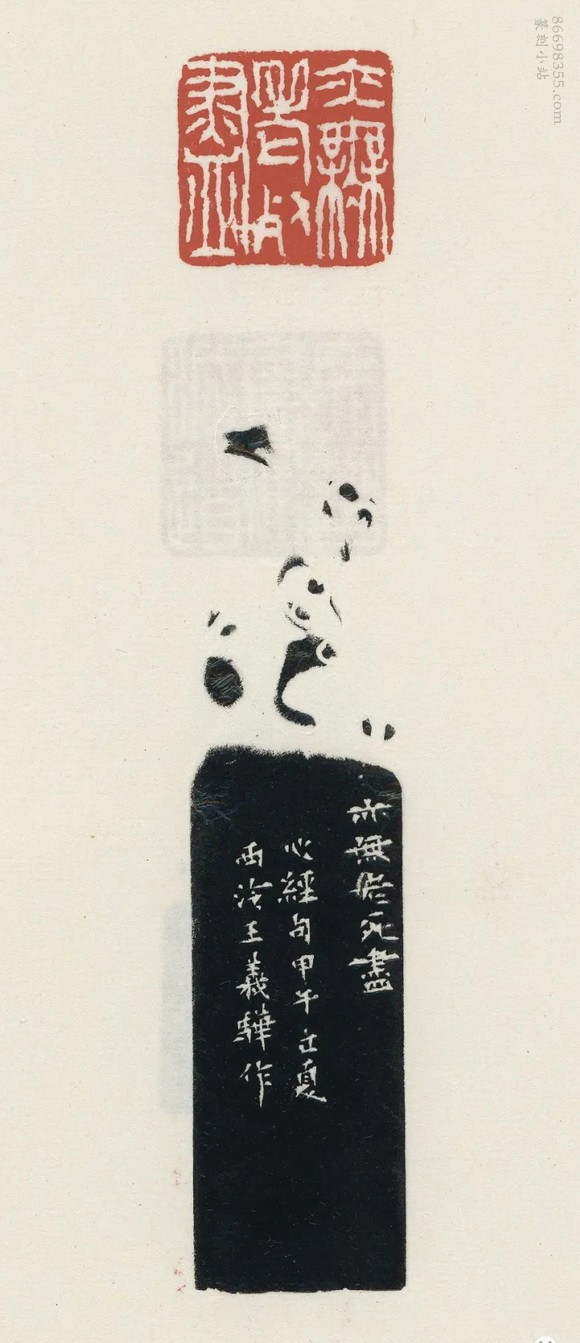 86698355.com
篆刻小站
亦無
老死
盡
亦無老死盡
心經句甲午立夏
西泠王義驊作